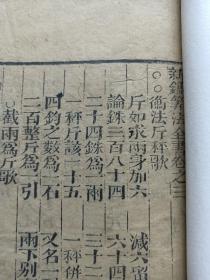 算法全書卷之
○○衡法斤秤歌
斤如求兩身加六 減六留
論銖三百八十四 六十四
二十四銖爲一兩 三十二
一秤斤該一十五 一秤併
四鈞之數爲一石 又名一
二百整斤爲一引 兩下別
○截兩爲斤歌